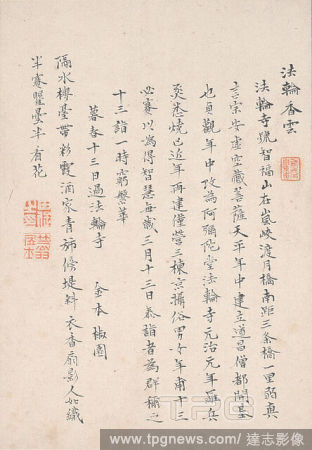 法輪香雲
法輪寺號智福山在嵐峽渡月橋南距三条橋一里弱真
言宗安虛空藏菩薩天平年中建立道昌僧都開基
也貞觀年中改為阿彌陀堂法輪寺元治元年罹兵
災悉燒亡近年再建僅營三棟京攝俗男女年甫十三
必賽以為得智慧每歲三月十三日參詣者為群稱之
十三詣一時窮繁華
暮春十三日過法輪寺 金本椒園
隔水樓臺帶彩霞酒家青旆倚堤斜衣香扇影人如織
半賽瞿曇半看花
TPG
www.tpgnews.com / 達志影像